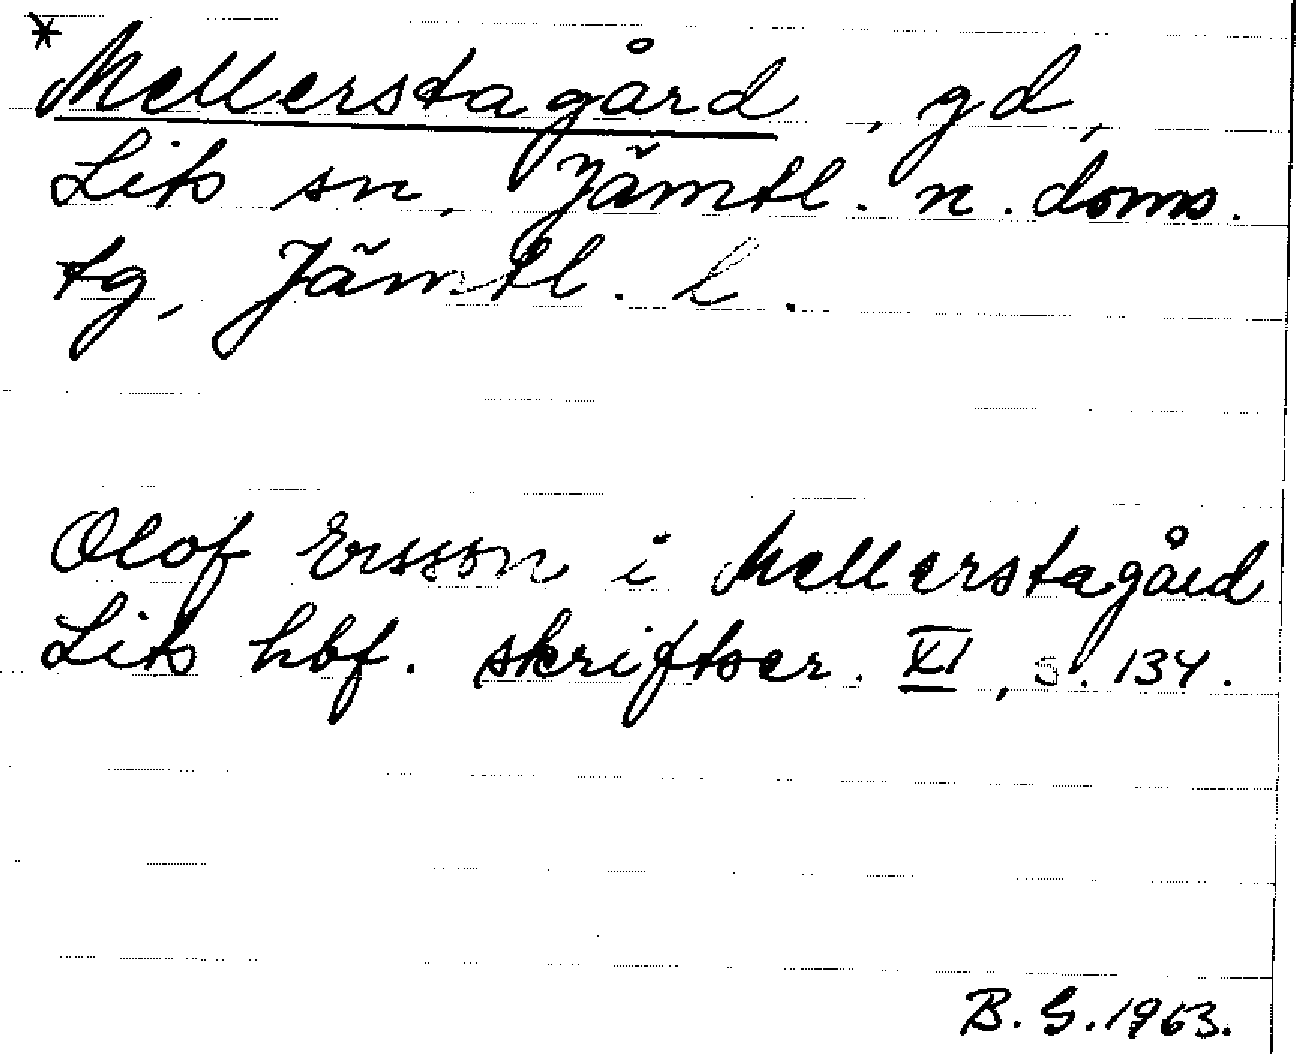 * Mellerstagård, gd,
Lits sn, Jämtl. n. doms.
tg, Jämtl. l.
Olof Ersson i Mellerstagård
Lits hbf. skriftser. XI, s. 134.
B. G. 1963.